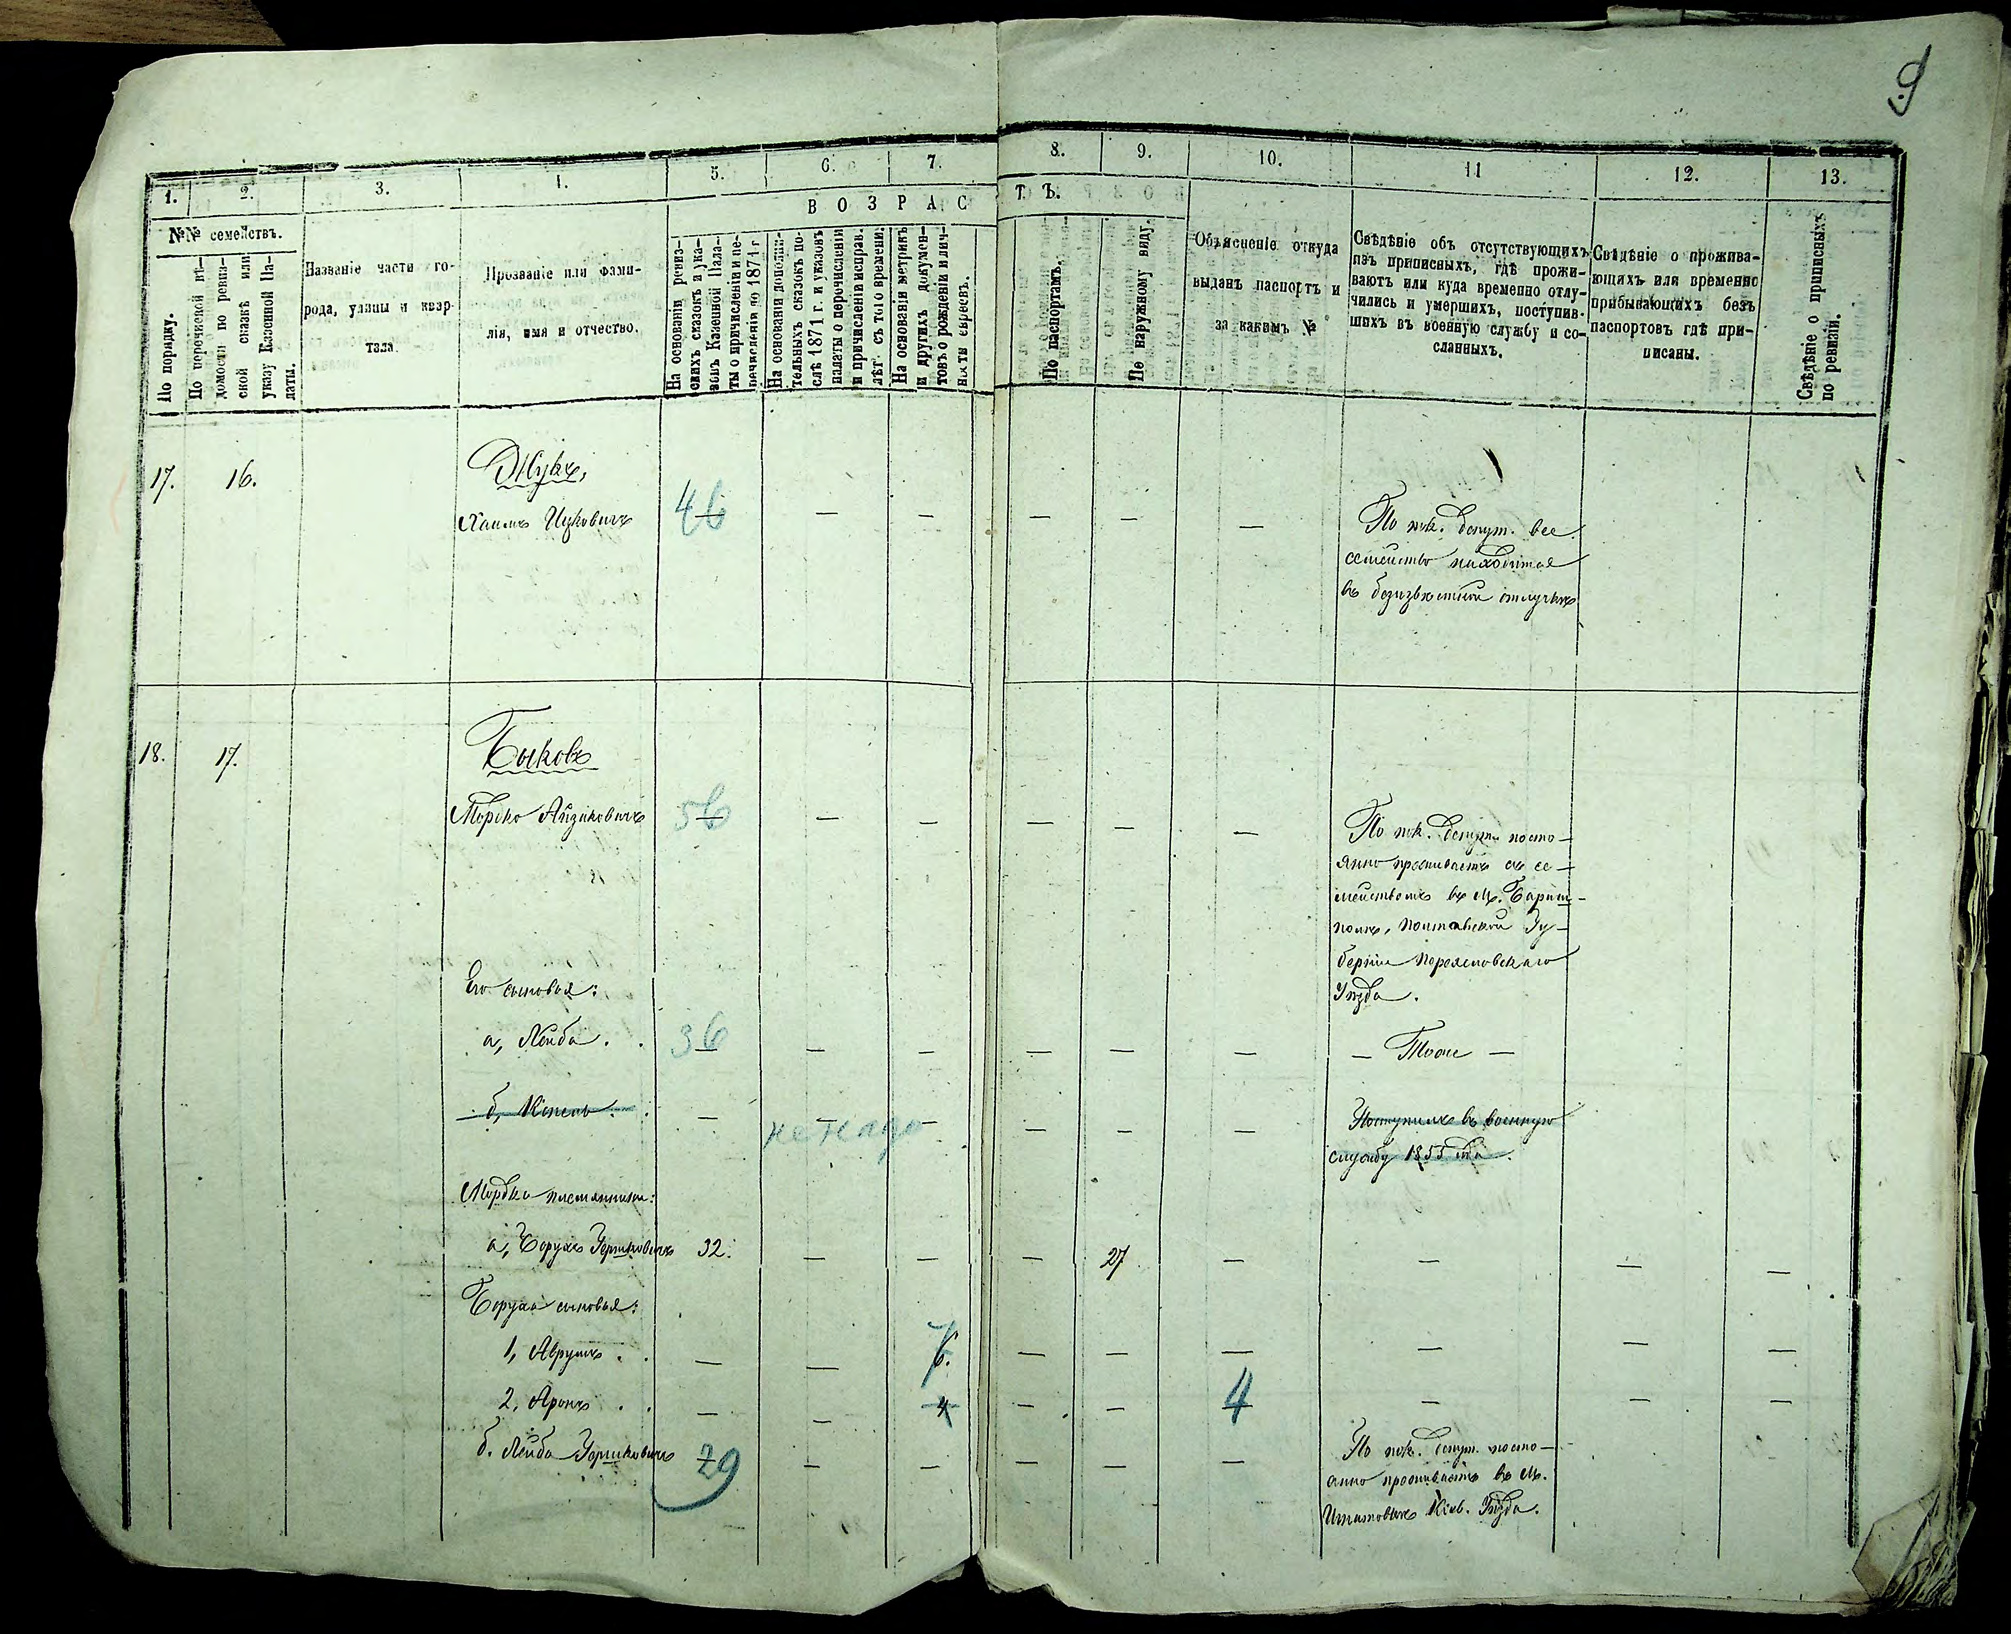 9
1.
2.
3.
4.
5.
6.
7.
8.
9.
10.
11
12.
13.
№№ семействъ.
В О З Р А С
Т Ъ.
По порядку.
По перечневой вѣ-
домости по ревиз-
ской сказкѣ или
указу Казенной Па-
латы.
Названіе части го-
рода, улицы и квар-
тала.
Прозваніе или фами-
лія, имя и отчество.
На основаніи ревиз-
скихъ сказокъ и ука-
зовъ Казенной Пала-
ты о причисленіи и пе-
речисленіи до 1871 г
На основаніи дополни-
тельныхъ сказокъ по-
слѣ 1871 г. и указовъ
палаты о перечисленіи
и причисленіи исправ.
лѣт. съ того времени.
На основаніи метрикъ
и другихъ докумен-
товъ о рожденіи и лич-
ности евреевъ.
По паспортамъ.
По наружному виду.
Объясненіе откуда
выданъ паспортъ и
за какимъ №
Свѣдѣніе объ отсутствующихъ
изъ приписныхъ, гдѣ прожи-
ваютъ или куда временно отлу-
чились и умершихъ, поступив-
шихъ въ военную службу и со-
сланныхъ.
Свѣдѣніе о прожива-
ющихъ или временно
прибывающихъ безъ
паспортовъ гдѣ при-
писаны.
Свѣдѣніе о приписныхъ
по ревизіи.
17. 16. Жукъ,
Хаимъ Ицковичъ 46 — — — — — По пок. депут. все
семейство находится
въ безизвѣстной отлучкѣ
18. 17. Быковъ
Мордко Айзиковичъ 56 — — — — — По пок. депут. посто-
янно проживаетъ съ се-
мействомъ въ м. Бариш-
полѣ, Полтавской Гу-
берніи Переяславскаго
Уѣзда.
Его сыновья:
а, Лейба . . 36 — — — — — — Тоже —
б, Копель . . — — не надо — — — — Поступилъ въ военную
службу 1855 года.
Мордка племянники:
а, Борухъ Гершковичъ 32. — — — 27 — — — —
Боруха сыновья:
1, Аврумъ . . — — 7 6. — — — — — —
2, Аронъ . . — — 4 — — 4 — — —
б. Лейба Гершковичъ 29 — — — — — По пок. депут. посто-
янно проживаетъ въ м.
Игнатовкѣ Кіев. Уѣзда.